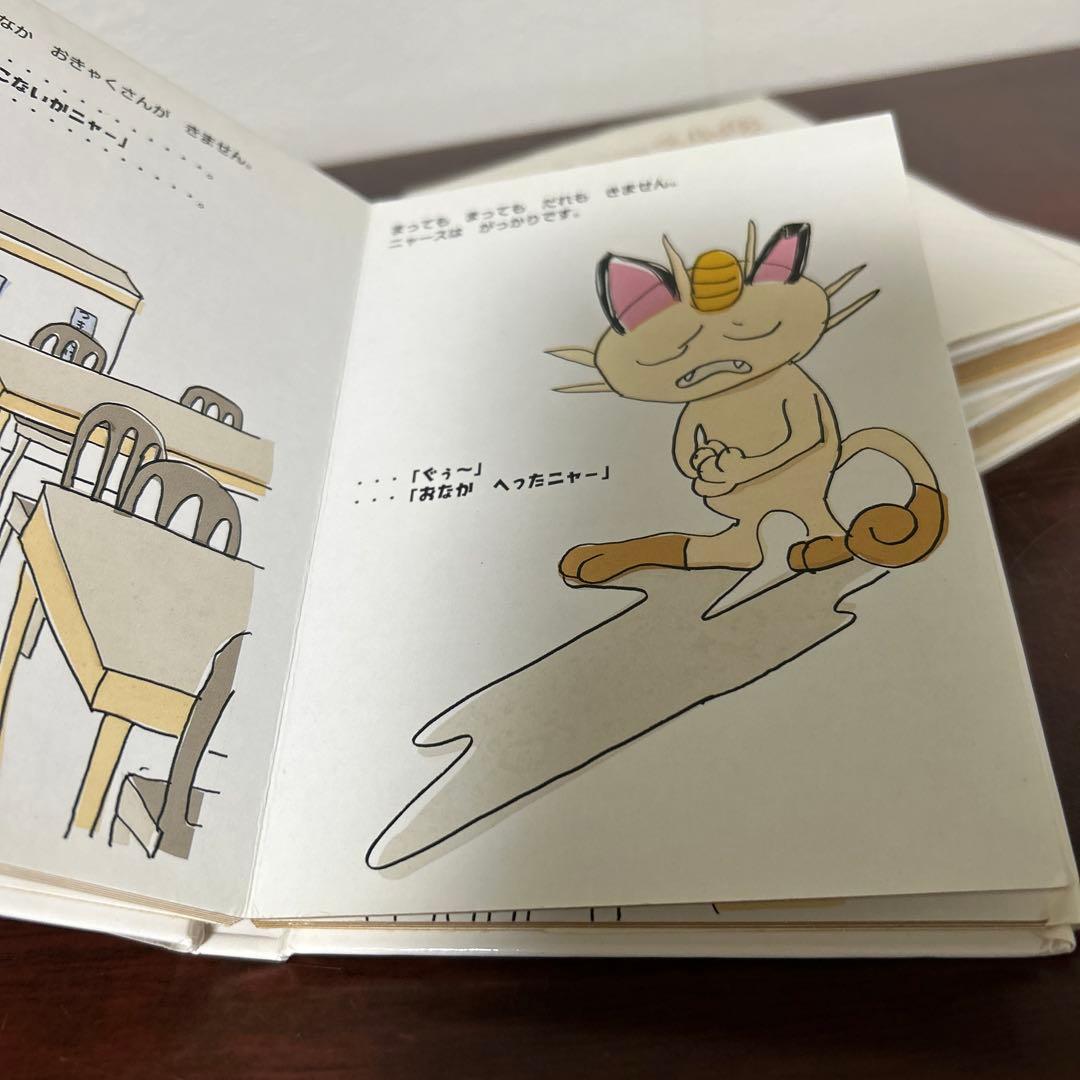 なか おきゃくさんが きません。
・・・・・・・・・・・・・。
こないかニャー」
・・・・・・・・・・・。
まっても まっても だれも きません。
ニャースは がっかりです。
・・・「ぐぅ〜」
・・・「おなか へったニャー」